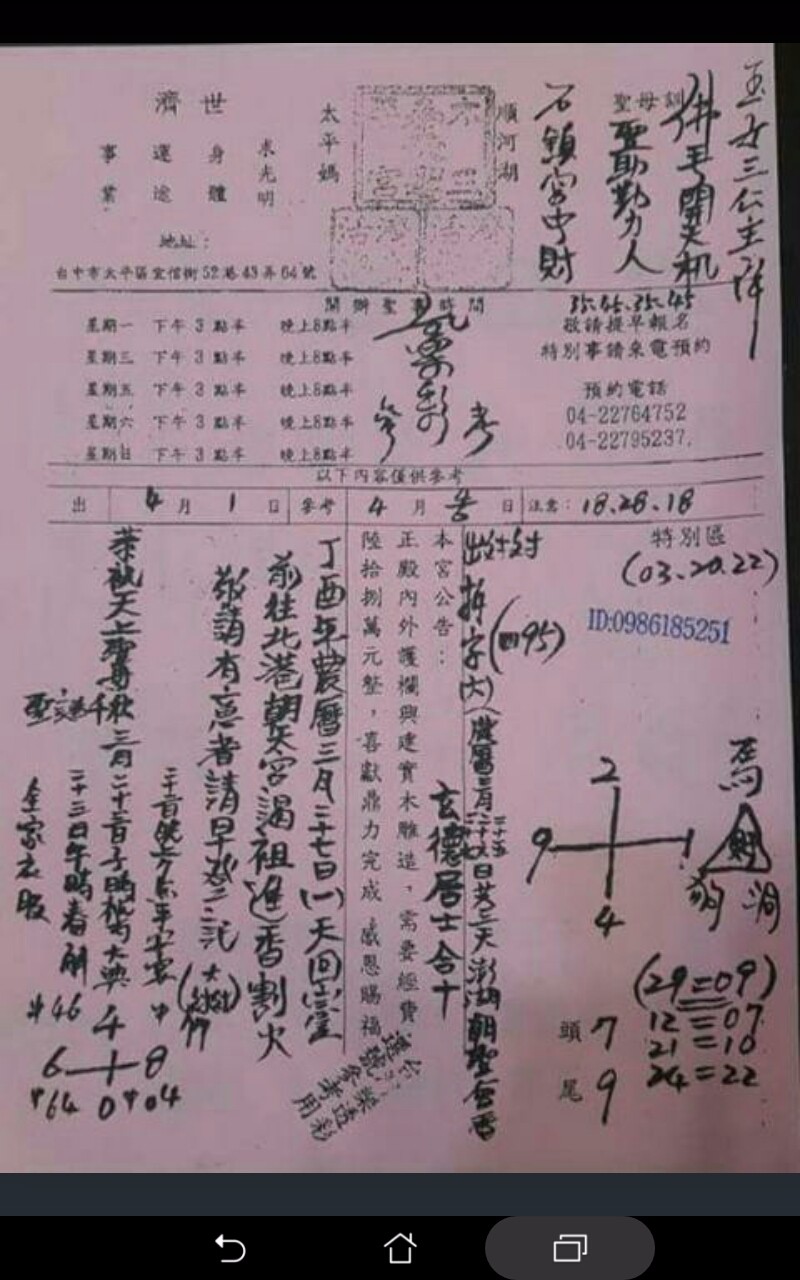 玉女三公主降
佛手開天机
聖母訓
聖助勤力人
石鎮宮中財
順河湖
太平媽
濟世
求光明
身體
運途
事業
地址：
台中市太平區宜信街52巷43弄64號
開辦聖事時間
星期一 下午3點半 晚上8點半
星期三 下午3點半 晚上8點半
星期五 下午3點半 晚上8點半
星期六 下午3點半 晚上8點半
星期日 下午3點半 晚上8點半
彩
參考
35.45.35.45
敬請提早報名
特別事請來電預約
預約電話
04-22764752
04-22795237.
以下內容僅供參考
出 4月1日 參考 4月 日 注意：18.28.18
特別區
(03.20.22)
ID:0986185251
拆字(六)
(四95)
本宮公告：
正殿內外護欄興建實木雕造，需要經費
陸拾捌萬元整，喜獻鼎力完成 感恩賜福
玄德居士合十
日共三天澎湖朝聖會香
丁酉年農曆三月二十七日(一)天回鑾
前往北港朝天宮謁祖進香割火
敬請有意者請早登記
恭祝天上聖母千秋三月二十三日子時祝壽大典
二十三日午時春解
全家衣服
2
9 1
4
馬
財
狗
(29=09)
12=07
21=10
24=22
頭 7
尾 9
46
4
6 8
64 0 04
選號參考用